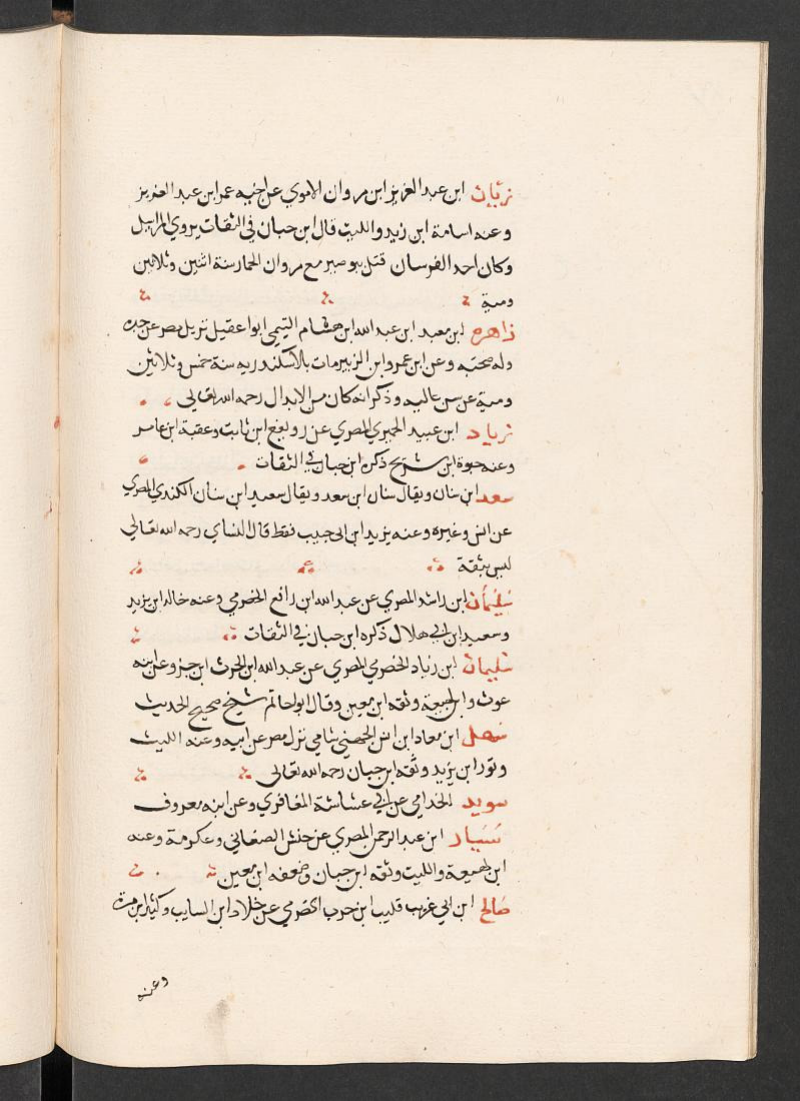 زبان ابن عبد العزيز ابن مروان الاموي عن اخيه عمر ابن عبد العزيز
وعنه اسامة ابن زيد والليث قال ابن حبان في الثقات يروي المراسيل
وكان احد الفرسان قتل ببوصير مع مروان الحمار سنة اثنين وثلاثين
ومية
زاهرة ابن معبد ابن عبد الله ابن هشام التيمي ابوا عقيل نزيل مصر عن جده
وله صحبه وعن ابن عمر وابن الزبير مات بالاسكندريه سنة خمس وثلاثين
ومية عن سن عاليه وذكر انه كان من الابدال رحمه الله تعالى
زياد ابن عبيد الحميري المصري عن رويفع ابن ثابت وعقبة ابن عامر
وعنه حيوة ابن شريح ذكره ابن حبان في الثقات
سعد ابن سنان ويقال سنان ابن سعد ويقال سعيد ابن سنان الكندي المصري
عن انس وغيره وعنه يزيد ابن ابي حبيب فقط قال النساي رحمه الله تعالى
ليس بثقة
سليمان ابن راشد المصري عن عبد الله ابن رافع الخضرمي وعنه خالد ابن يزيد
وسعيد ابن ابي هلال ذكره ابن حبان في الثقات
سليمان ابن زياد الخضرمي المصري عن عبد الله ابن الحرث ابن جزء وعنه ابنه
غوث وابن لهيعة وثقه ابن معين وقال ابوا حاتم شيخ صحيح الحديث
سهل ابن معاد ابن انس الجهني شامي نزل مصر عن ابيه وعنه الليث
وثور ابن يزيد وثقه ابن حبان رحمه الله تعالى
سويد الخدامي عن ابي عشاشة المعافري وعن ابنه معروف
سيار ابن عبد الرحمن المصري عن حنش الصنعاني وعكرمة وعنه
ابن لهيعة والليث وثقه ابن حبان وضعفه ابن معين
صالح ابن ابي غريب قليب ابن حرب الحضرمي عن خلاد ابن السايب وكثير ابن مرة
وعنه